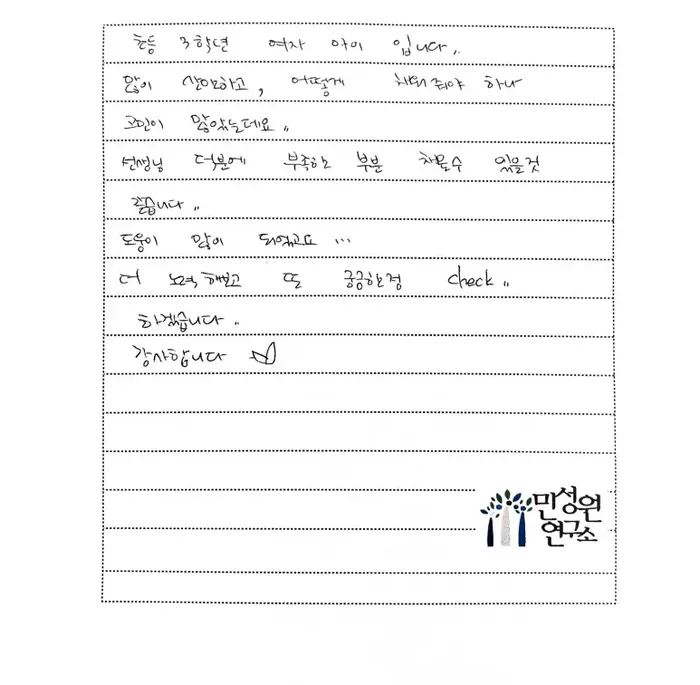 초등 3학년 여자 아이 입니다..
많이 산만하고, 어떻게 채워줘야 하나
고민이 많았는데요..
선생님 덕분에 부족한 부분 채울수 있을것
같습니다..
도움이 많이 되었고요...
더 노력해보고 또 궁금한점 check..
하겠습니다..
감사합니다
민성원
연구소